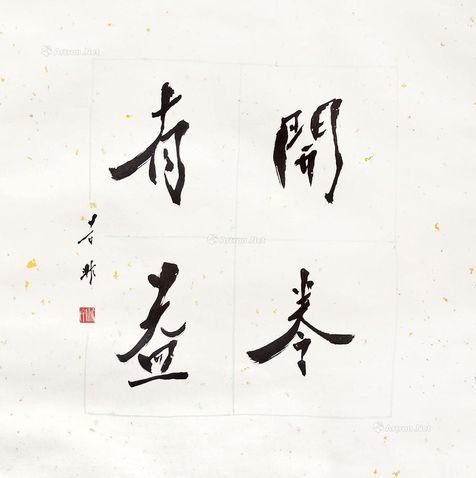 開卷
有益
Artron.Net
Artron.Net
Artron.Net